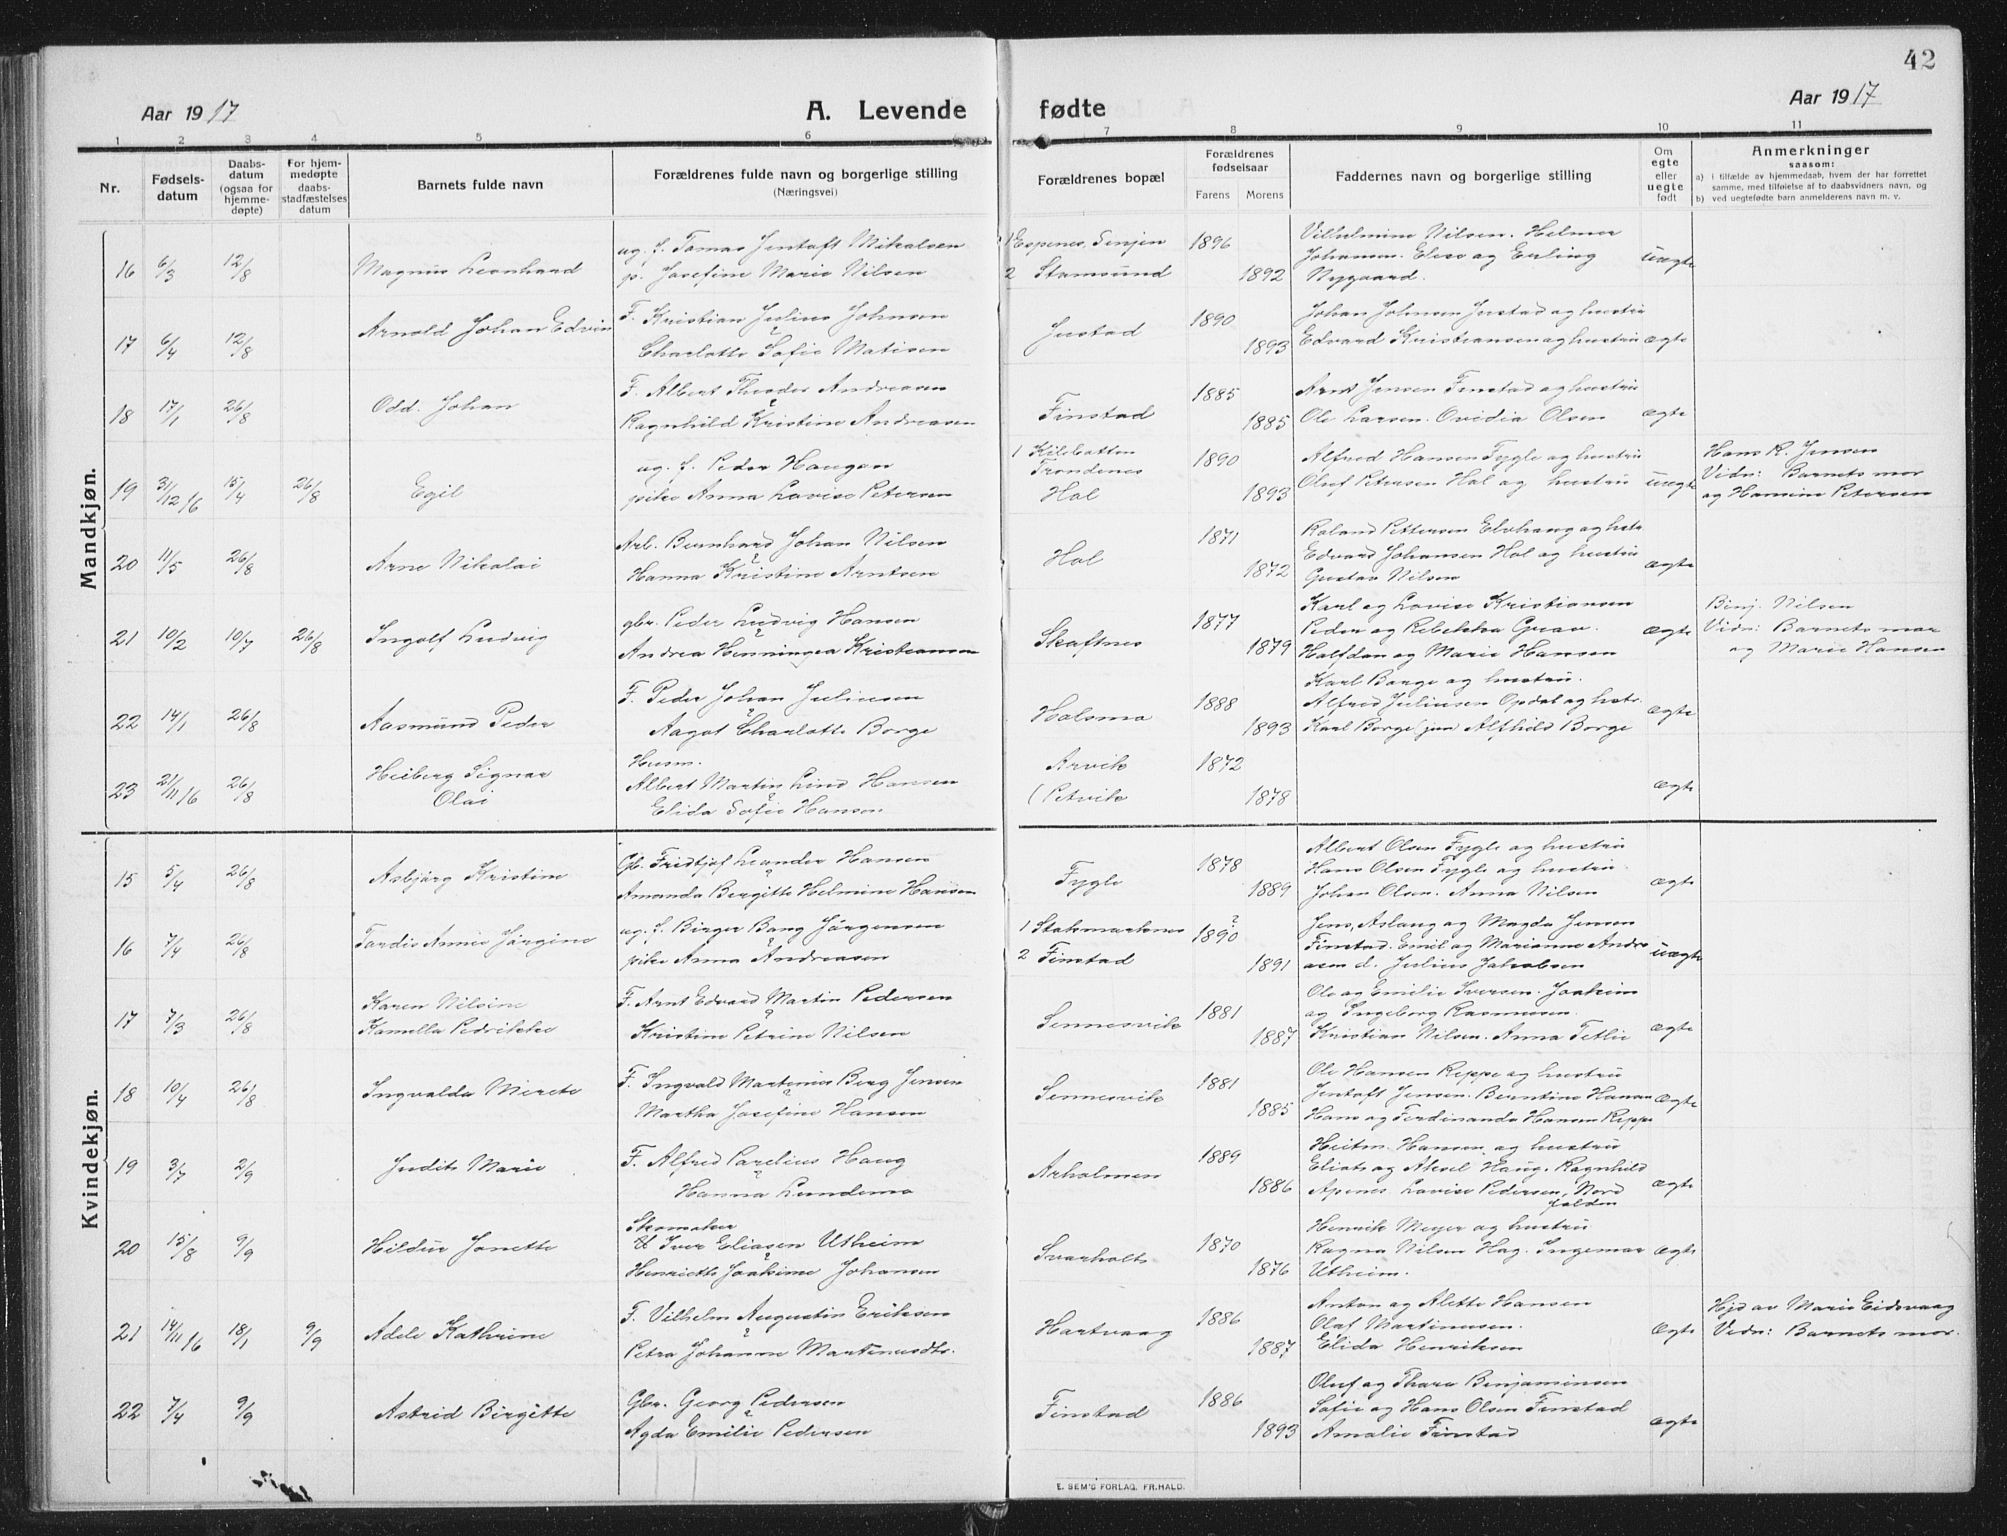 42
Aar 1917
A. Levende fødte
Aar 1917
1 2 3 4 5 6 7 8 9 10 11
Nr.
Fødsels-
datum
Daabs-
datum
(ogsaa for
hjemme-
døpte)
For hjem-
medøpte
daabs-
stadfæstelses
datum
Barnets fulde navn
Forældrenes fulde navn og borgerlige stilling
(Næringsvei)
Forældrenes bopæl
Forældrenes
fødselsaar
Farens Morens
Faddernes navn og borgerlige stilling
Om
egte
eller
uegte
født
Anmerkninger
saasom:
a) i tilfælde av hjemmedaab, hvem der har forrettet
samme, med tilføielse af to daabsvidners navn, og
b) ved uegtefødte barn anmelderens navn m. v.
Mandkjøn.
16 6/3 12/8 Magnus Leonhard
ug. f. Tomas Jentoft Mikalsen
p. Josefine Marie Nilsen
1 Espenes, Senjen 1896
2 Stamsund 1892
Vilhelmine Nilsen. Helmer
Johansen. Elise og Erling
Nygaard.
uegte
17 6/4 12/8 Arnold Johan Edvin
F. Kristian Julius Johnsen
Charlotte Sofie Matisen
Justad 1890 1893
Johan Johnsen Justad og hustru
Edvard Kristiansen og hustru
ægte
18 17/1 26/8 Odd. Johan
F. Albert Theodor Andreasen
Ragnhild Kristine Andreasen
Finstad 1885 1885
Arnt Jensen Finstad og hustru
Ole Larsen. Ovidia Olsen
ægte
19 31/12 16 15/4 26/8 Egil
ug. f. Peder Haugan
pike Anna Lovise Petersen
1 Kilbotten
Trondenes
Hol
1890 1893
Alfred Hansen Fygle og hustru
Oluf Petersen Hol og hustru
uegte
Hans R. Jensen
Vidn: Barnets mor
og Hansine Petersen
20 11/5 26/8 Arne Nikolai
Arb. Bernhard Johan Nilsen
Hanna Kristine Arntsen
Hol 1871 1872
Roland Pettersen Elvhaug og hstr
Edvard Johansen Hol og hustru
Gustav Nilsen
ægte
21 10/2 10/7 26/8 Ingolf Ludvig
gbr. Peder Ludvig Hansen
Andrea Henningea Kristiansen
Skaftnes 1877 1879
Karl og Lovise Kristiansen
Peder og Rebekka Grav.
Halfdan og Marie Hansen
ægte
Binj. Nilsen
Vidn: Barnets mor
og Marie Hansen
22 14/1 26/8 Aasmund Peder
F. Peder Johan Juliusen
Aagot Charlotte Borge
Holsmo 1888 1893
Karl Borge og hustru.
Alfred Juliusen Opdøl og hstr.
Karl Borge jun Alfhild Borge
ægte
23 21/11 16 26/8 Heiberg Signar
Olai
Husm.
Albert Martin Lind Hansen
Elida Sofie Hansen
Arvik
(Petvik
1872 1878
ægte
Kvindekjøn.
15 5/4 26/8 Asbjørg Kristine
Gb. Fridtjof Leander Hansen
Amanda Bergitte Helmine Hansen
Fygle 1878 1889
Albert Olsen Fygle og hustru
Hans Olsen Fygle og hustru.
Johan Olsen. Anna Nilsen
ægte
16 7/4 26/8 Tordis Annie Jørgine
ug. f. Birger Bang Jørgensen
pike Anna Andreasen
1 Stokmarknes
2 Finstad
1890 ? 1891
Jens, Aslaug og Magda Jensen
Finstad. Emil og Marianne Andre
asen d. Julius Jakobsen
uegte
17 7/3 26/8 Karen Nilsine
Kamella Pedrikke
F. Arnt Edvard Martin Pedersen
Kristine Petrine Nilsen
Sennesvik 1881 1887
Ole og Emilie Iversen. Joakim
og Ingeborg Rasmussen.
Kristian Nilsen. Anna Tetlie
ægte
18 10/4 26/8 Ingvalda Merete
F. Ingvald Martinus Berg Jensen
Martha Josefine Hansen
Sennesvik 1881 1885
Ole Hansen Reppe og hustru
Jentoft Jensen. Berntine Hansen
Hans og Ferdinanda Hansen Reppe
ægte
19 3/7 2/9 Judith Marie
F. Alfred Parelius Haug
Hanna Lundemo
Arholmen 1889 1886
Heitm. Hansen og hustru
Eliot og Aksel Haug. Ragnhild
Apenes. Lovise Pedersen, Nord
folden
ægte
20 15/8 9/9 Hildur Jonette
Skomaker
U Iver Eliasen Utheim
Henriette Joakime Johansen
Svarholt 1870 1876
Henrik Meyer og hustru
Ragna Nilsen Hag. Ingemar
Utheim.
ægte
21 14/11 16 18/1 9/9 Adele Kathrine
F. Vilhelm Augustin Eriksen
Petra Johanne Martinusdtr.
Hartvaag 1886 1887
Anton og Alette Hansen
Olaf Martinusen.
Elida Henriksen
ægte
Hjd av Marie Eidsvaag
Vidn: Barnets mor.
22 7/4 9/9 Astrid Birgitte
Gbr. Georg Pedersen
Agda Emilie Pedersen
Finstad 1886 1893
Oluf og Thora Benjaminsen
Sofie og Hans Olsen Finstad
Amalie Finstad
ægte
E. SEM'S FORLAG, FR.HALD.